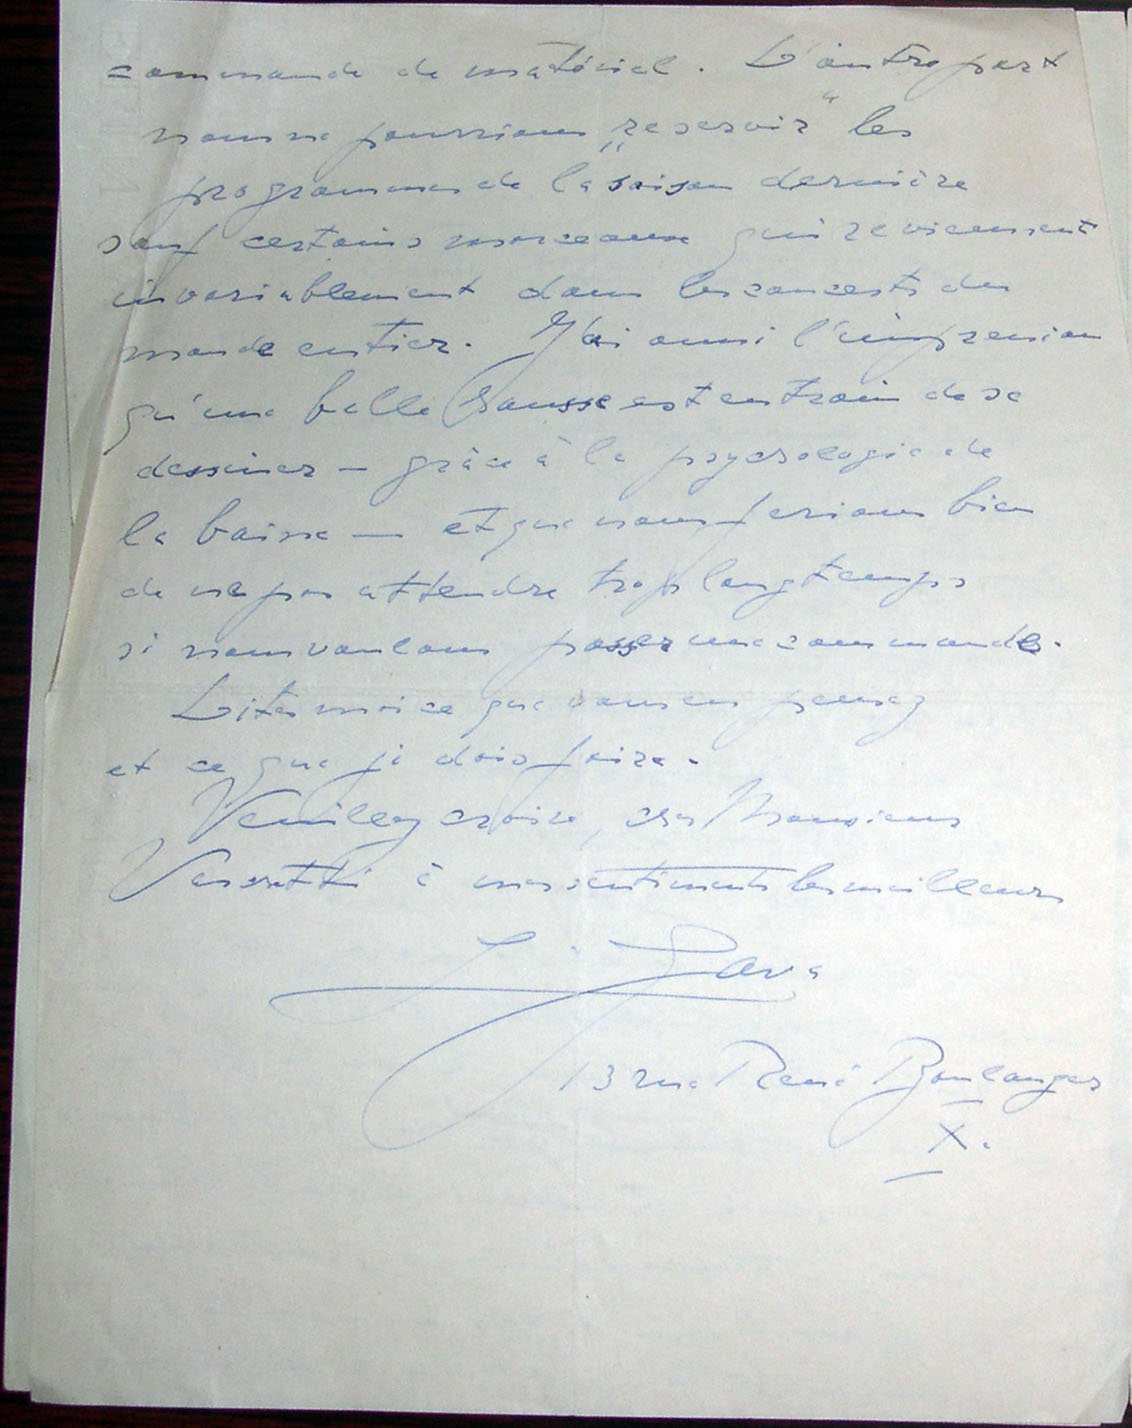 commande de matériel. D'autre part
nous ne pourrions "resservir" les
programmes de la saison dernière
sauf certains morceaux qui reviennent
invariablement dans les concerts du
monde entier. J'ai aussi l'impression
qu'une belle hausse est en train de se
dessiner — grâce à la psychologie de
la baisse — et que nous ferions bien
de ne pas attendre trop longtemps
si nous voulons passer une commande.
Dites moi ce que vous en pensez
et ce que je dois faire.
Veuillez croire, cher Monsieur
à mes sentiments les meilleurs
13 rue René Boulanger
X.